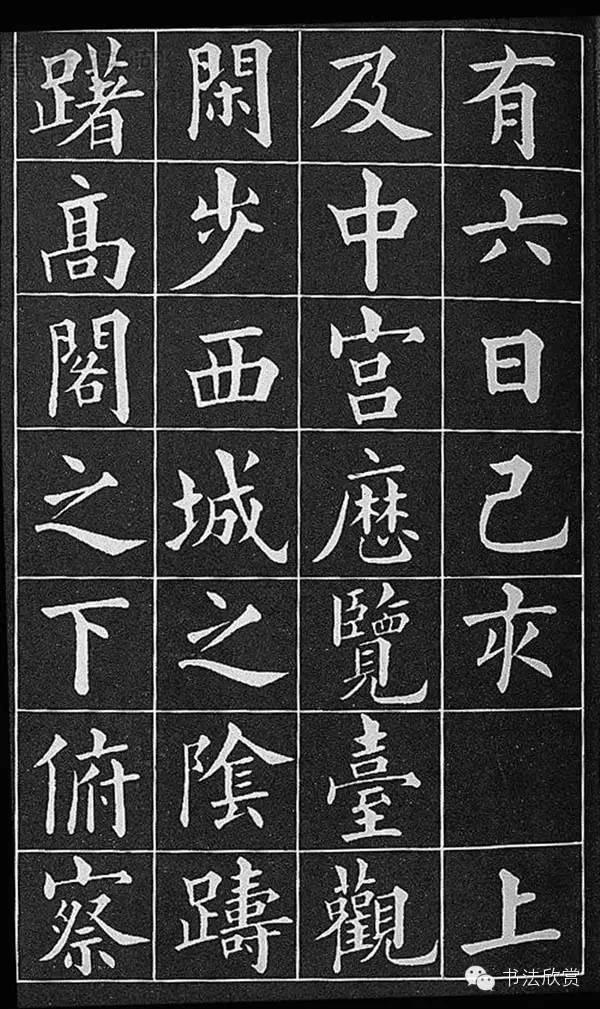 有六日己亥　上
及中宫歷覽臺觀
閑步西城之陰躊
躇髙閣之下俯察
书法欣赏